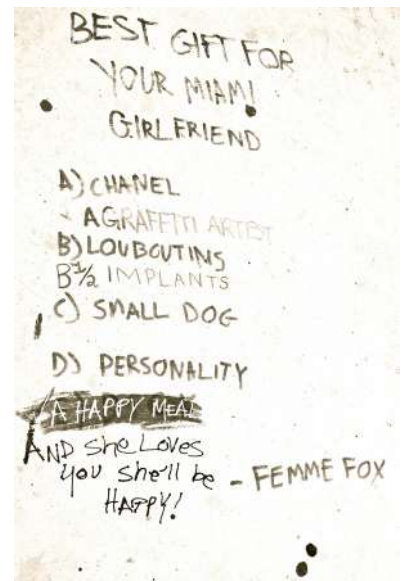 BEST GIFT FOR
YOUR MIAMI
GIRLFRIEND
A) CHANEL
A GRAFFITI ARTIST
B) LOUBOUTINS
B 1/2 IMPLANTS
C) SMALL DOG
D) PERSONALITY
A HAPPY MEAL
AND SHe Loves
you She'll be
HAPPY!
- FEMME FOX